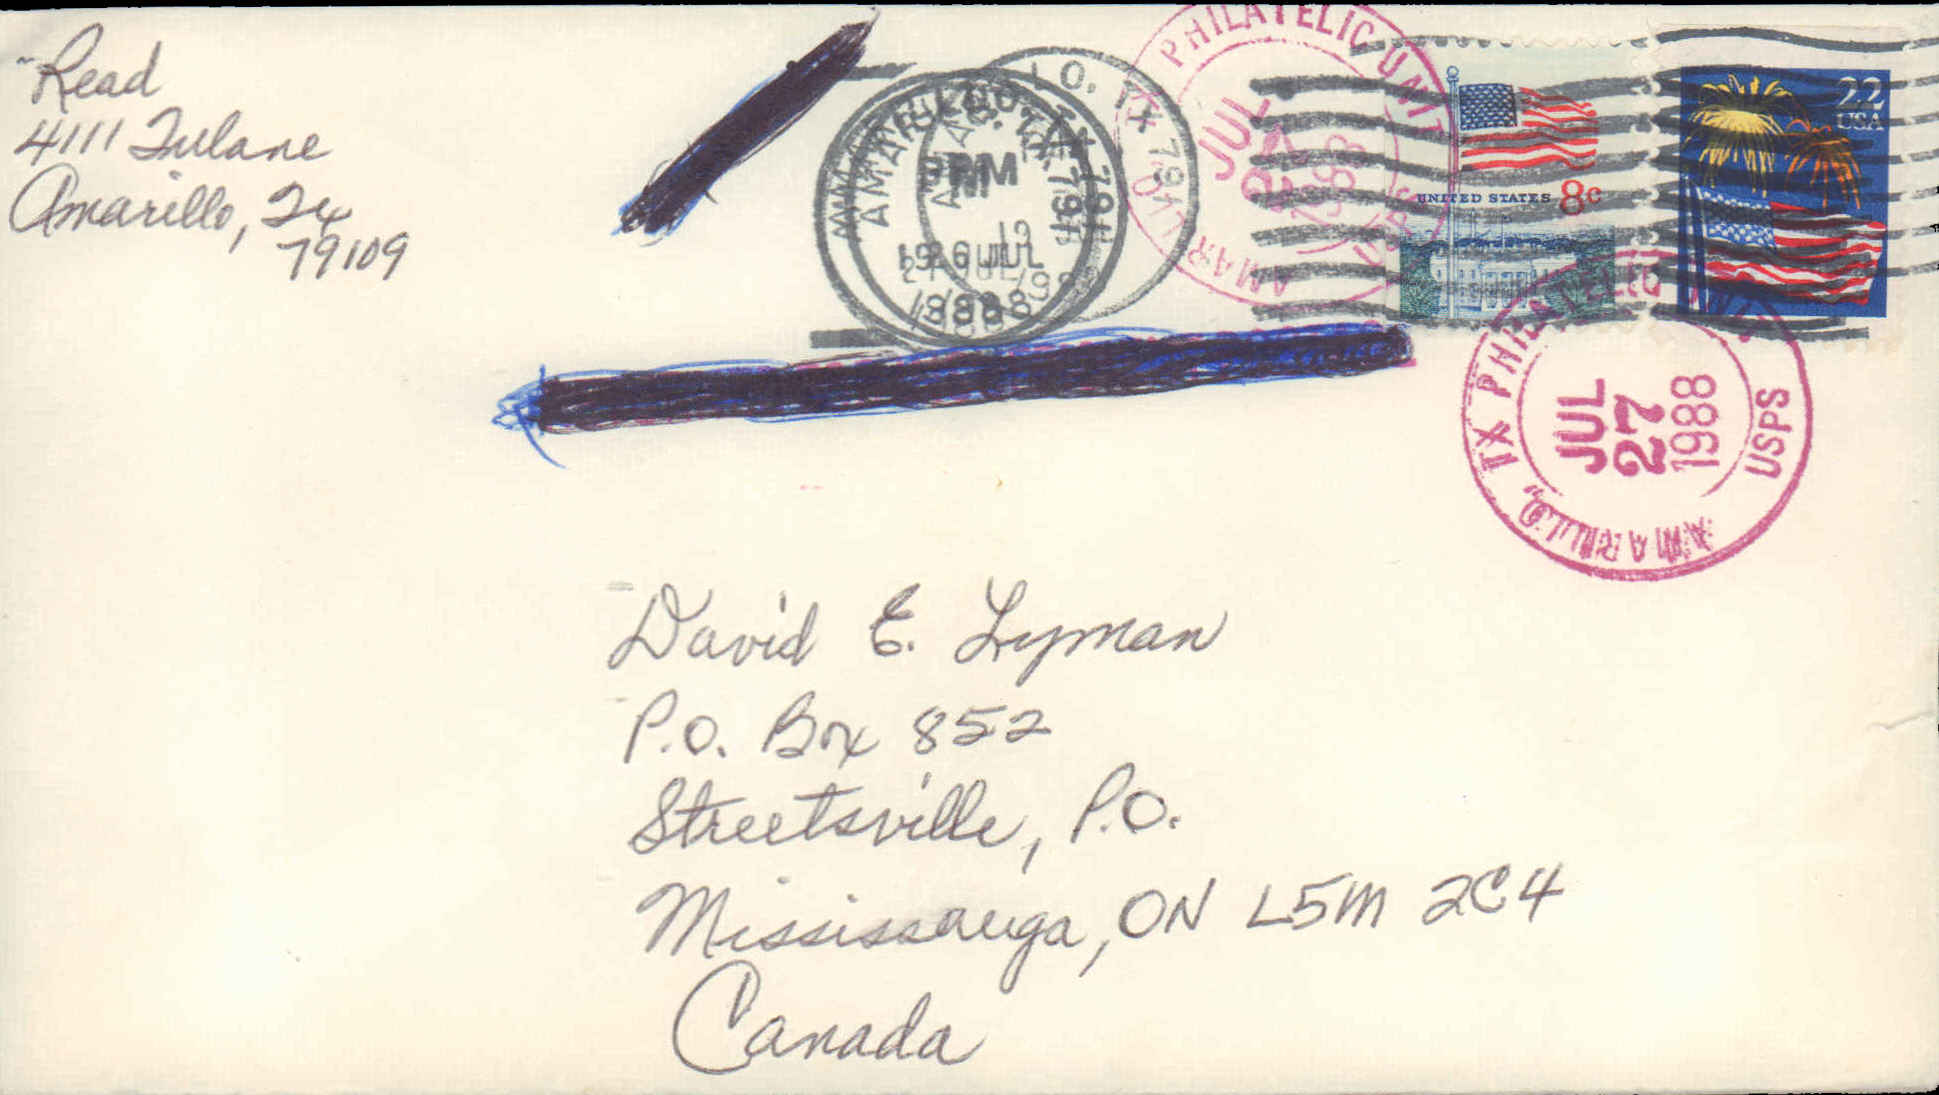 Read
4111 Tulane
Amarillo, Tx
79109
AMARILLO, TX 791
PM
JUL
1988
PHILATELIC UNIT
JUL
27
1988
USPS
AMARILLO, TX
UNITED STATES 8c
22
USA
AMARILLO, TX PHILATELIC UNIT
JUL
27
1988
USPS
David E. Lyman
P.O. Box 852
Streetsville, P.O.
Mississauga, ON L5M 2C4
Canada